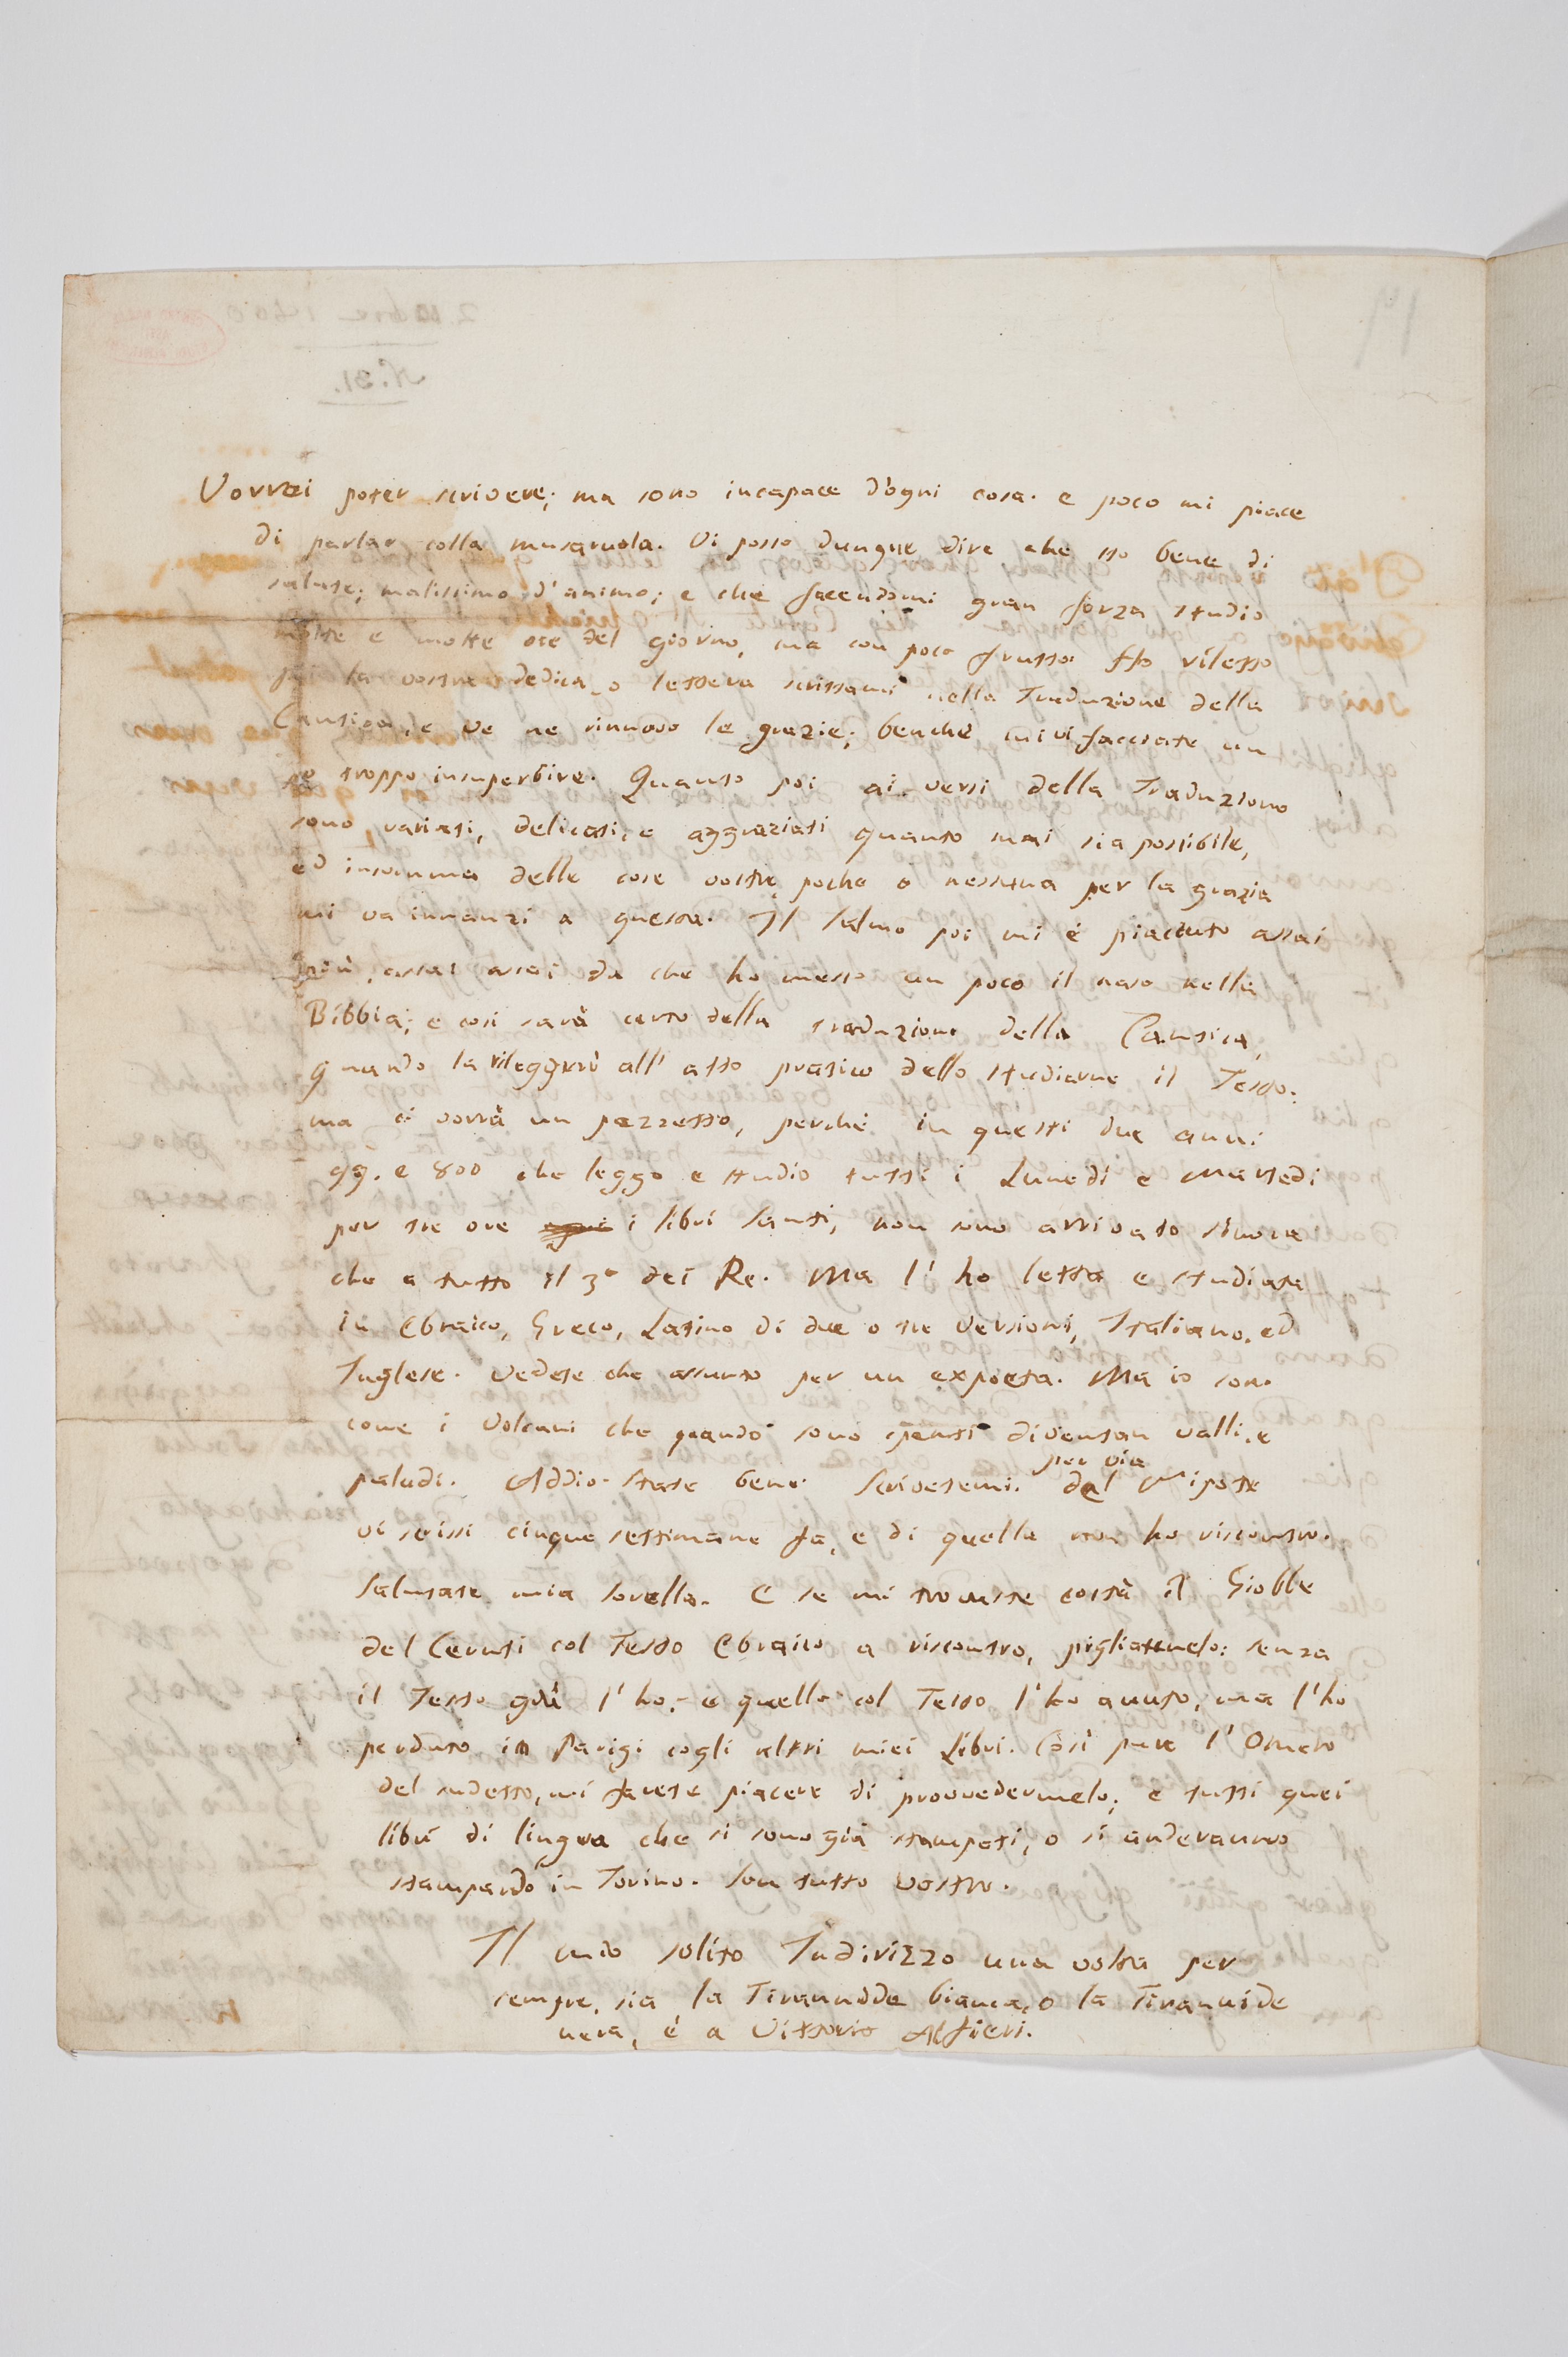 Vorrei poter scrivere; ma sono incapace d'ogni cosa. e poco mi piace
di parlar colla museruola. Vi posso dunque dire che sto bene di
salute; malissimo d'animo; e che facendomi gran forza studio
molte e molte ore del giorno, ma con poco frutto. Ho riletto
poi la vostra dedica, o lettera scrittami nella Traduzione della
Cantica, e ve ne rinnovo le grazie; benchè mi vi facciate un
po troppo insuperbire. Quanto poi ai versi della Traduzione
sono variati, delicati, e aggraziati quanto mai sia possibile,
ed insomma delle cose vostre poche o nessuna per la grazia
mi va innanzi a questa. Il Salmo poi mi è piaciuto assai
più, assai assai da che ho messo un poco il naso nella
Bibbia; e così sarà certo della traduzione della Cantica,
quando la rileggerò all'atto pratico dello studiarne il Testo:
ma ci vorrà un pezzetto, perchè in questi due anni
99. e 800 che leggo e studio tutti i Lunedì e Martedì
per tre ore i libri santi, non sono arrivato sinora
che a tutto il 3° dei Re. Ma l'ho letta e studiata
in Ebraico, Greco, Latino di due o tre Versioni, Italiano, ed
Inglese. Vedete che assunto per un expoeta. Ma io son
come i Volcani che quando sono spenti diventan valli, e
paludi. Addio. State bene. Scrivetemi. per via del Nipote
vi scrissi cinque settimane fa, e di quella non ho riscontro.
Salutate mia sorella. E se mi trovaste costà il Giobbe
del Ceruti col Testo Ebraico a riscontro, pigliatemelo: senza
il Testo già l'ho; e quello col Testo l'ho avuto, ma l'ho
perduto in Parigi cogli altri miei Libri. Così pure l'Omero
del sudetto, mi farete piacere di provvedermelo; e tutti quei
libri di lingua che si sono già stampati, o si anderanno
stampando in Torino. Son tutto vostro.
Il mio solito Indirizzo una volta per
sempre, sia la Tirannide bianca, o la Tirannide
nera, è a Vittorio Alfieri.